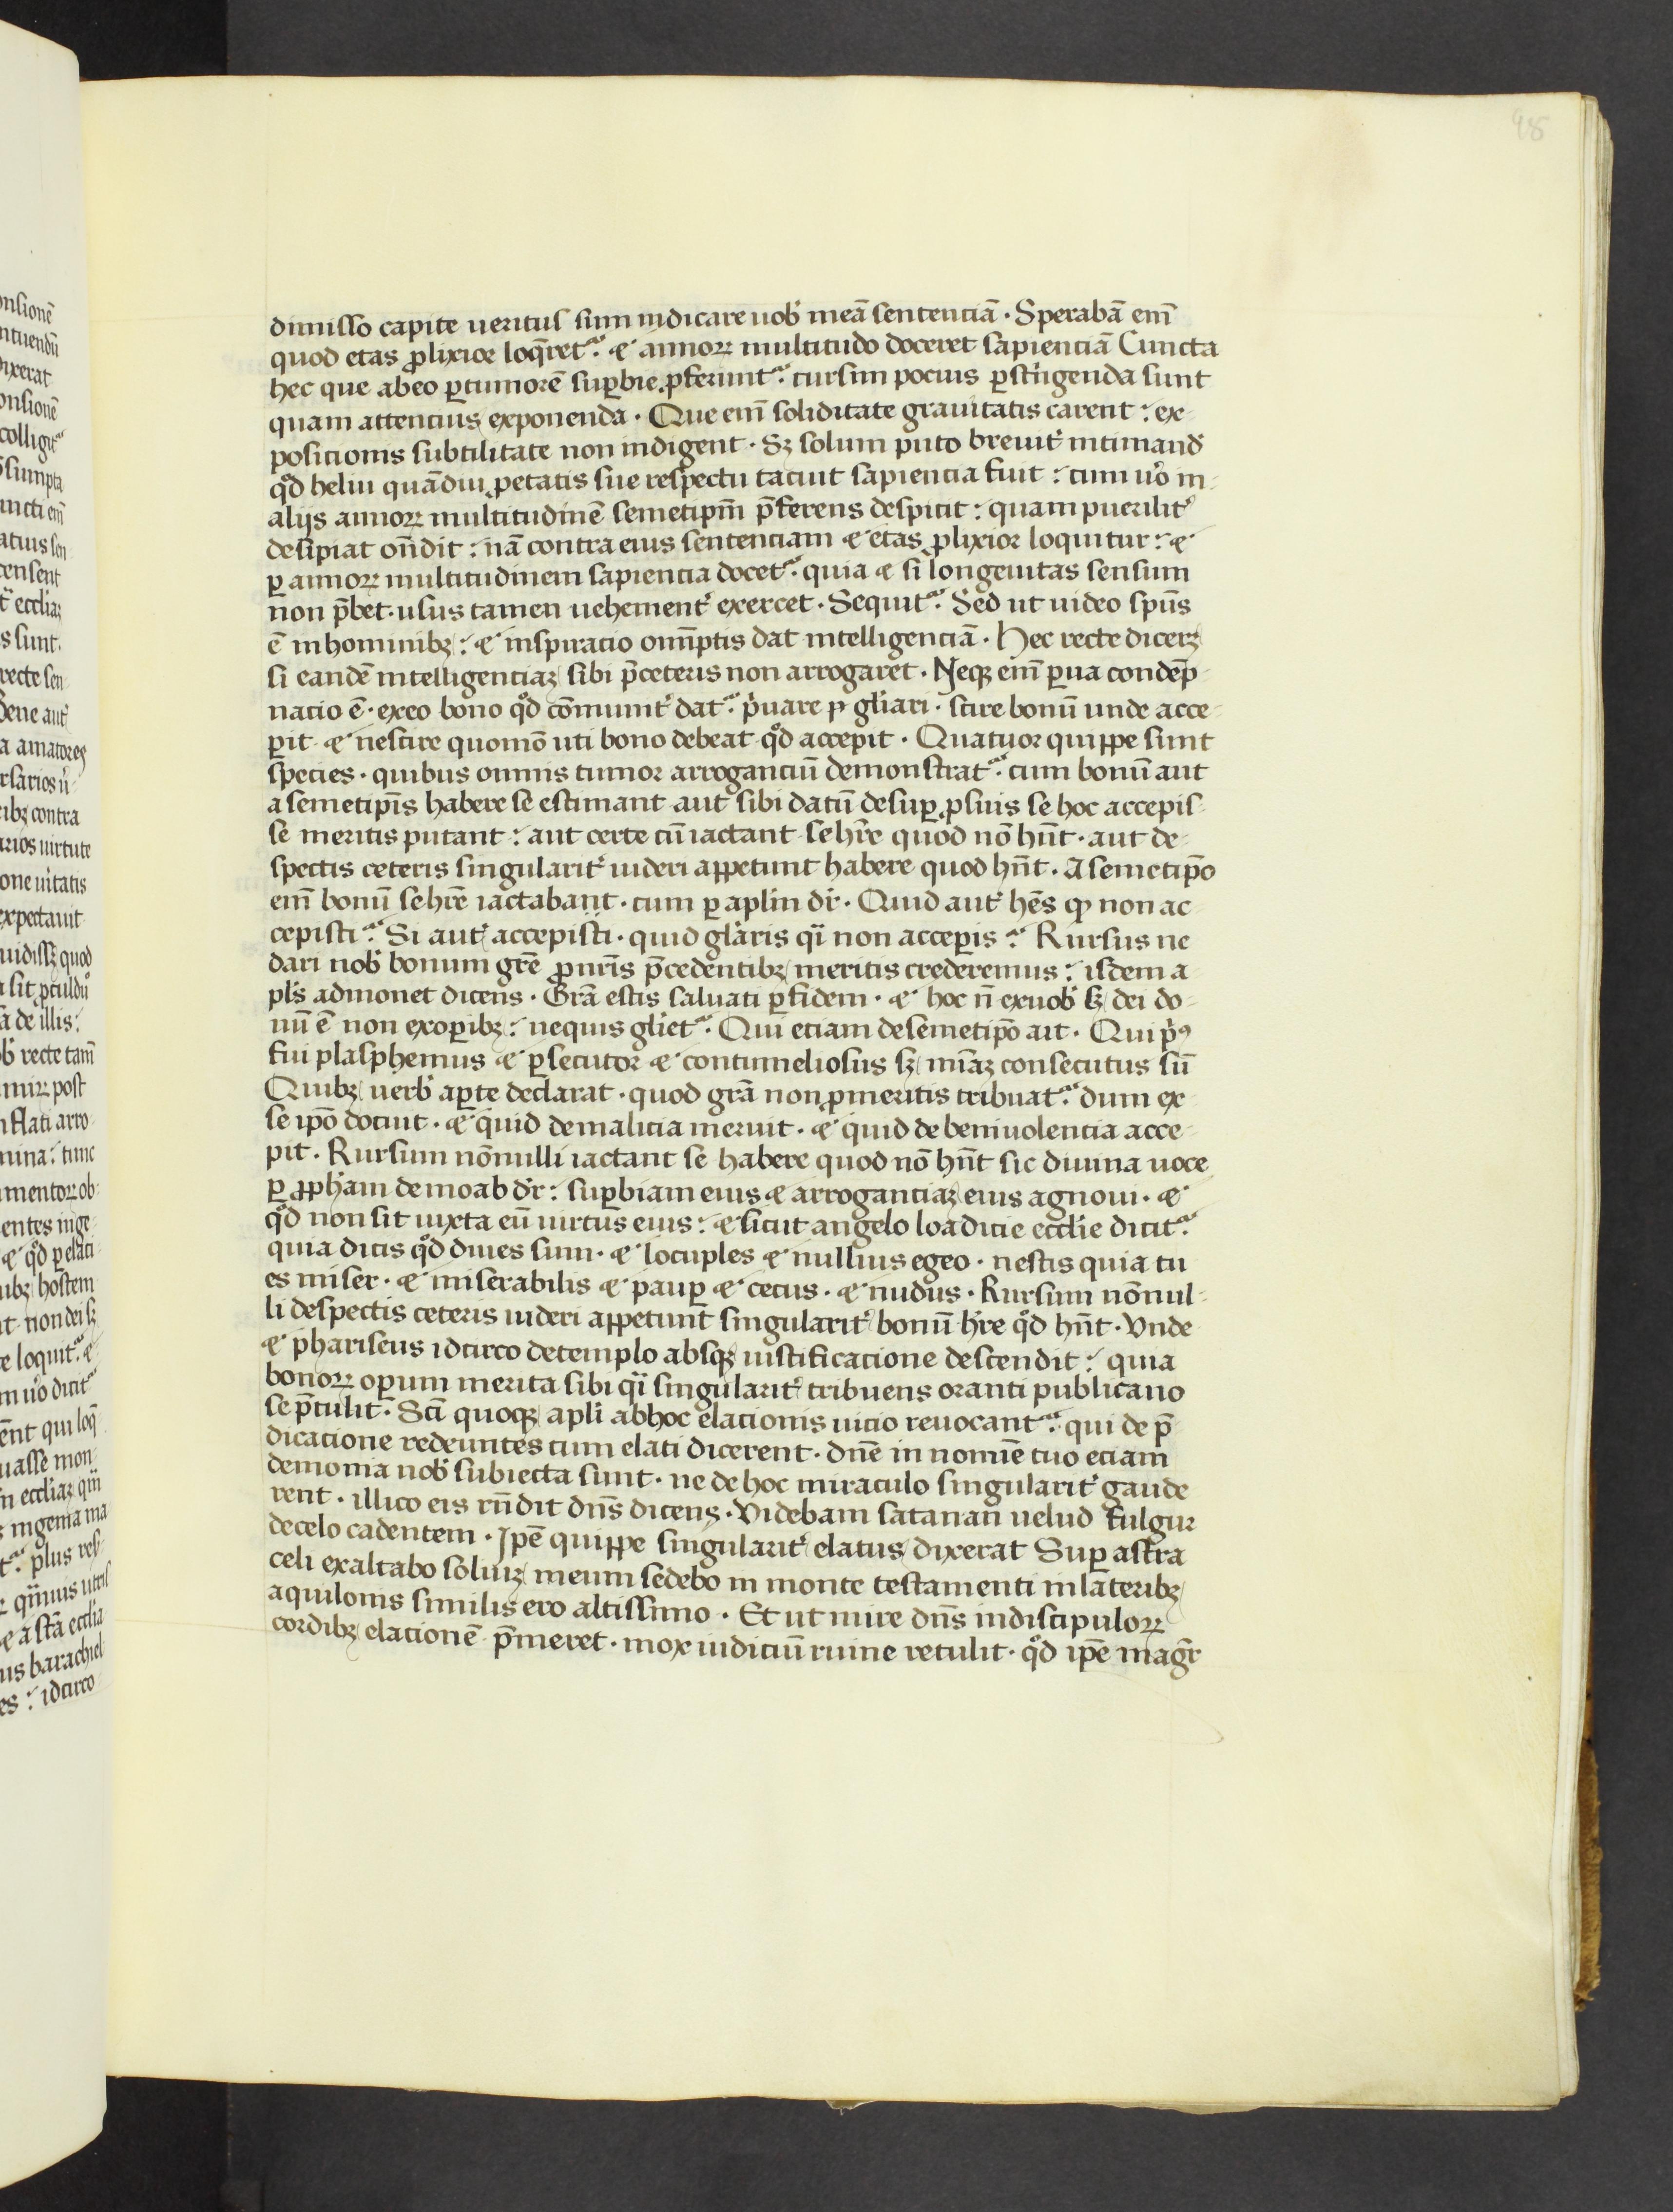 98
dimisso capite ueritus sum indicare uob̕ meā sententiā · Sperabā em̄
quod etas ꝓlixior loq̄ret᷑ · ⁊ annoꝝ multitudo doceret sapienciā Cuncta
hec que ab eo ꝑ tumorē suꝑbie ꝓferunt᷑ · cursim pocius ꝑstͥngenda sunt
quam attencius exponenda · Que em̄ soliditate grauitatis carent : ex-
posicionis subtilitate non indigent · Sꝫ solum puto breuit̕ intimand̕
qͦd heliu quādiu ꝓ etatis sue respectu tacuit sapiencia fuit : cum u̕o in
alijs annoꝝ multitudinē semetip̄m p̄ferens despicit : quam puerilit̕
desipiat on̄dit : nā contra eius sentenciam ⁊ etas ꝓlixior loquitur : ⁊
ꝑ annoꝝ multitudinem sapiencia docet᷑ · quia ⁊ si longeuitas sensum
non p̄bet · usus tamen uehement̕ exercet · Sequit᷑ · Sed ut uideo sp̄us
ē in hominibꝫ : ⁊ inspiracio omīptis dat intelligenciā · Hec recte dicerꝫ
si eandē intelligenciaꝫ sibi p̄ ceteris non arrogaret · Neqꝫ em̄ ꝑua condēp-
nacio ē · ex eo bono qͦd cōmunit̕ dat᷑ · pͥuare ꝑ gl̄iari · scire bonū unde acce-
pit ⁊ nescire quomō uti bono debeat qͦd accepit · Quatuor quippe sunt
species · quibus omnis tumor arroganciū demonstrat᷑ · cum bonū aut
a semetip̄is habere se estimant aut sibi datū desuꝑ ꝓ suis se hoc accepis-
se meritis putant : aut certe cū iactant se hr̄e quod nō hn̄t · aut de-
spectis ceteris singularit̕ uideri appetunt habere quod hn̄t · A semetip̄o
em̄ bonū se hr̄e iactabant · cum ꝑ apl̄m dr̄ · Quid aut̕ hēs qͦ non ac-
cepisti᷑ · Si aut̕ accepisti · quid gl̄aris qͣi non acceperis᷑ · Rursus ne
dari nob̕ bonum grē ꝓ nr̄is p̄cedentibꝫ meritis crederemus : isdem a-
pl̄s admonet dicens · Grā estis saluati ꝑ fidem · ⁊ hoc n̄ ex uob̕ sꝫ dei do-
nū ē non ex oꝑibꝫ : ne quis gl̄iet᷑ · Qui eciam de semetip̄o ait · Qui pͥꝯ
fui plasphemus ⁊ ꝑsecutor ⁊ contumeliosus sꝫ mīaꝫ consecutus sū
Quibꝫ uerb̕ aꝑte declarat · quod grā non ꝓ meritis tribuat᷑ · dum ex
se ip̄o docuit · ⁊ quid de malicia meruit · ⁊ quid de beniuolencia acce-
pit · Rursum nōnulli iactant se habere quod nō hn̄t sic diuina uoce
ꝑ ꝓph̄am de moab dr̄ : suꝑbiam eius ⁊ arroganciaꝫ eius agnoui · ⁊
qͦd non sit iuxta eū uirtus eius : ⁊ sicut angelo loadicie eccl̄ie dicit᷑ ·
quia dicis qͦd diues sum · ⁊ locuples ⁊ nullius egeo · nescis quia tu
es miser · ⁊ miserabilis ⁊ pauꝑ ⁊ cecus · ⁊ nudus · Rursum nōnul-
li despectis ceteris uideri appetunt singularit̕ bonū hr̄e qͦd hn̄t · Vnde
⁊ phariseus idcirco de templo absqꝫ iustificacione descendit : quia
bonoꝝ oꝑum merita sibi qͣi singularit̕ tribuens oranti publicano
se p̄tulit · Scī quoqꝫ apl̄i ab hoc elacionis uicio reuocant᷑ · qui de p̄-
dicacione redeuntes cum elati dicerent · dn̄e in nomīe tuo eciam
demonia nob̕ subiecta sunt · ne de hoc miraculo singularit̕ gaude-
rent · illico eis rn̄dit dn̄s dicens · Videbam satanan uelud fulgur
de celo cadentem · Ip̄e quippe singularit̕ elatus dixerat Suꝑ astra
celi exaltabo soliuꝫ meum sedebo in monte testamenti in lateribꝫ
aquilonis similis ero altissimo · Et ut mire dn̄s in discipuloꝝ
cordibꝫ elacionē p̄meret · mox iudiciū ruine retulit · qͦd ip̄e magr̄